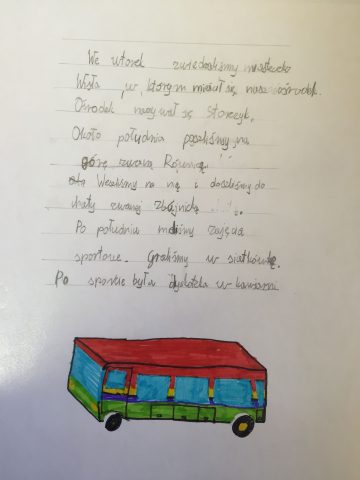 We wtorek zwiedzaliśmy miasteczko
Wisła w którym mieścił się nasz ośrodek.
Ośrodek nazywał się Storczyk.
Około południa poszliśmy na
górę zwaną Równicą.
Weszliśmy na nią i doszliśmy do
chaty zwanej Zbójnicką
Po południu mieliśmy zajęcia
sportowe. Graliśmy w siatkówkę.
Po sporcie była dyskoteka w kawiarni